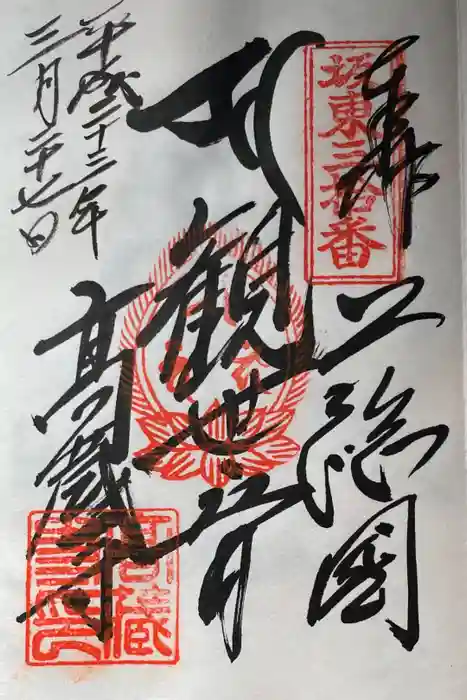 奉拝
坂東三拾番
上総国
観世音
高蔵寺
平成二十三年
二月二十七日
高蔵